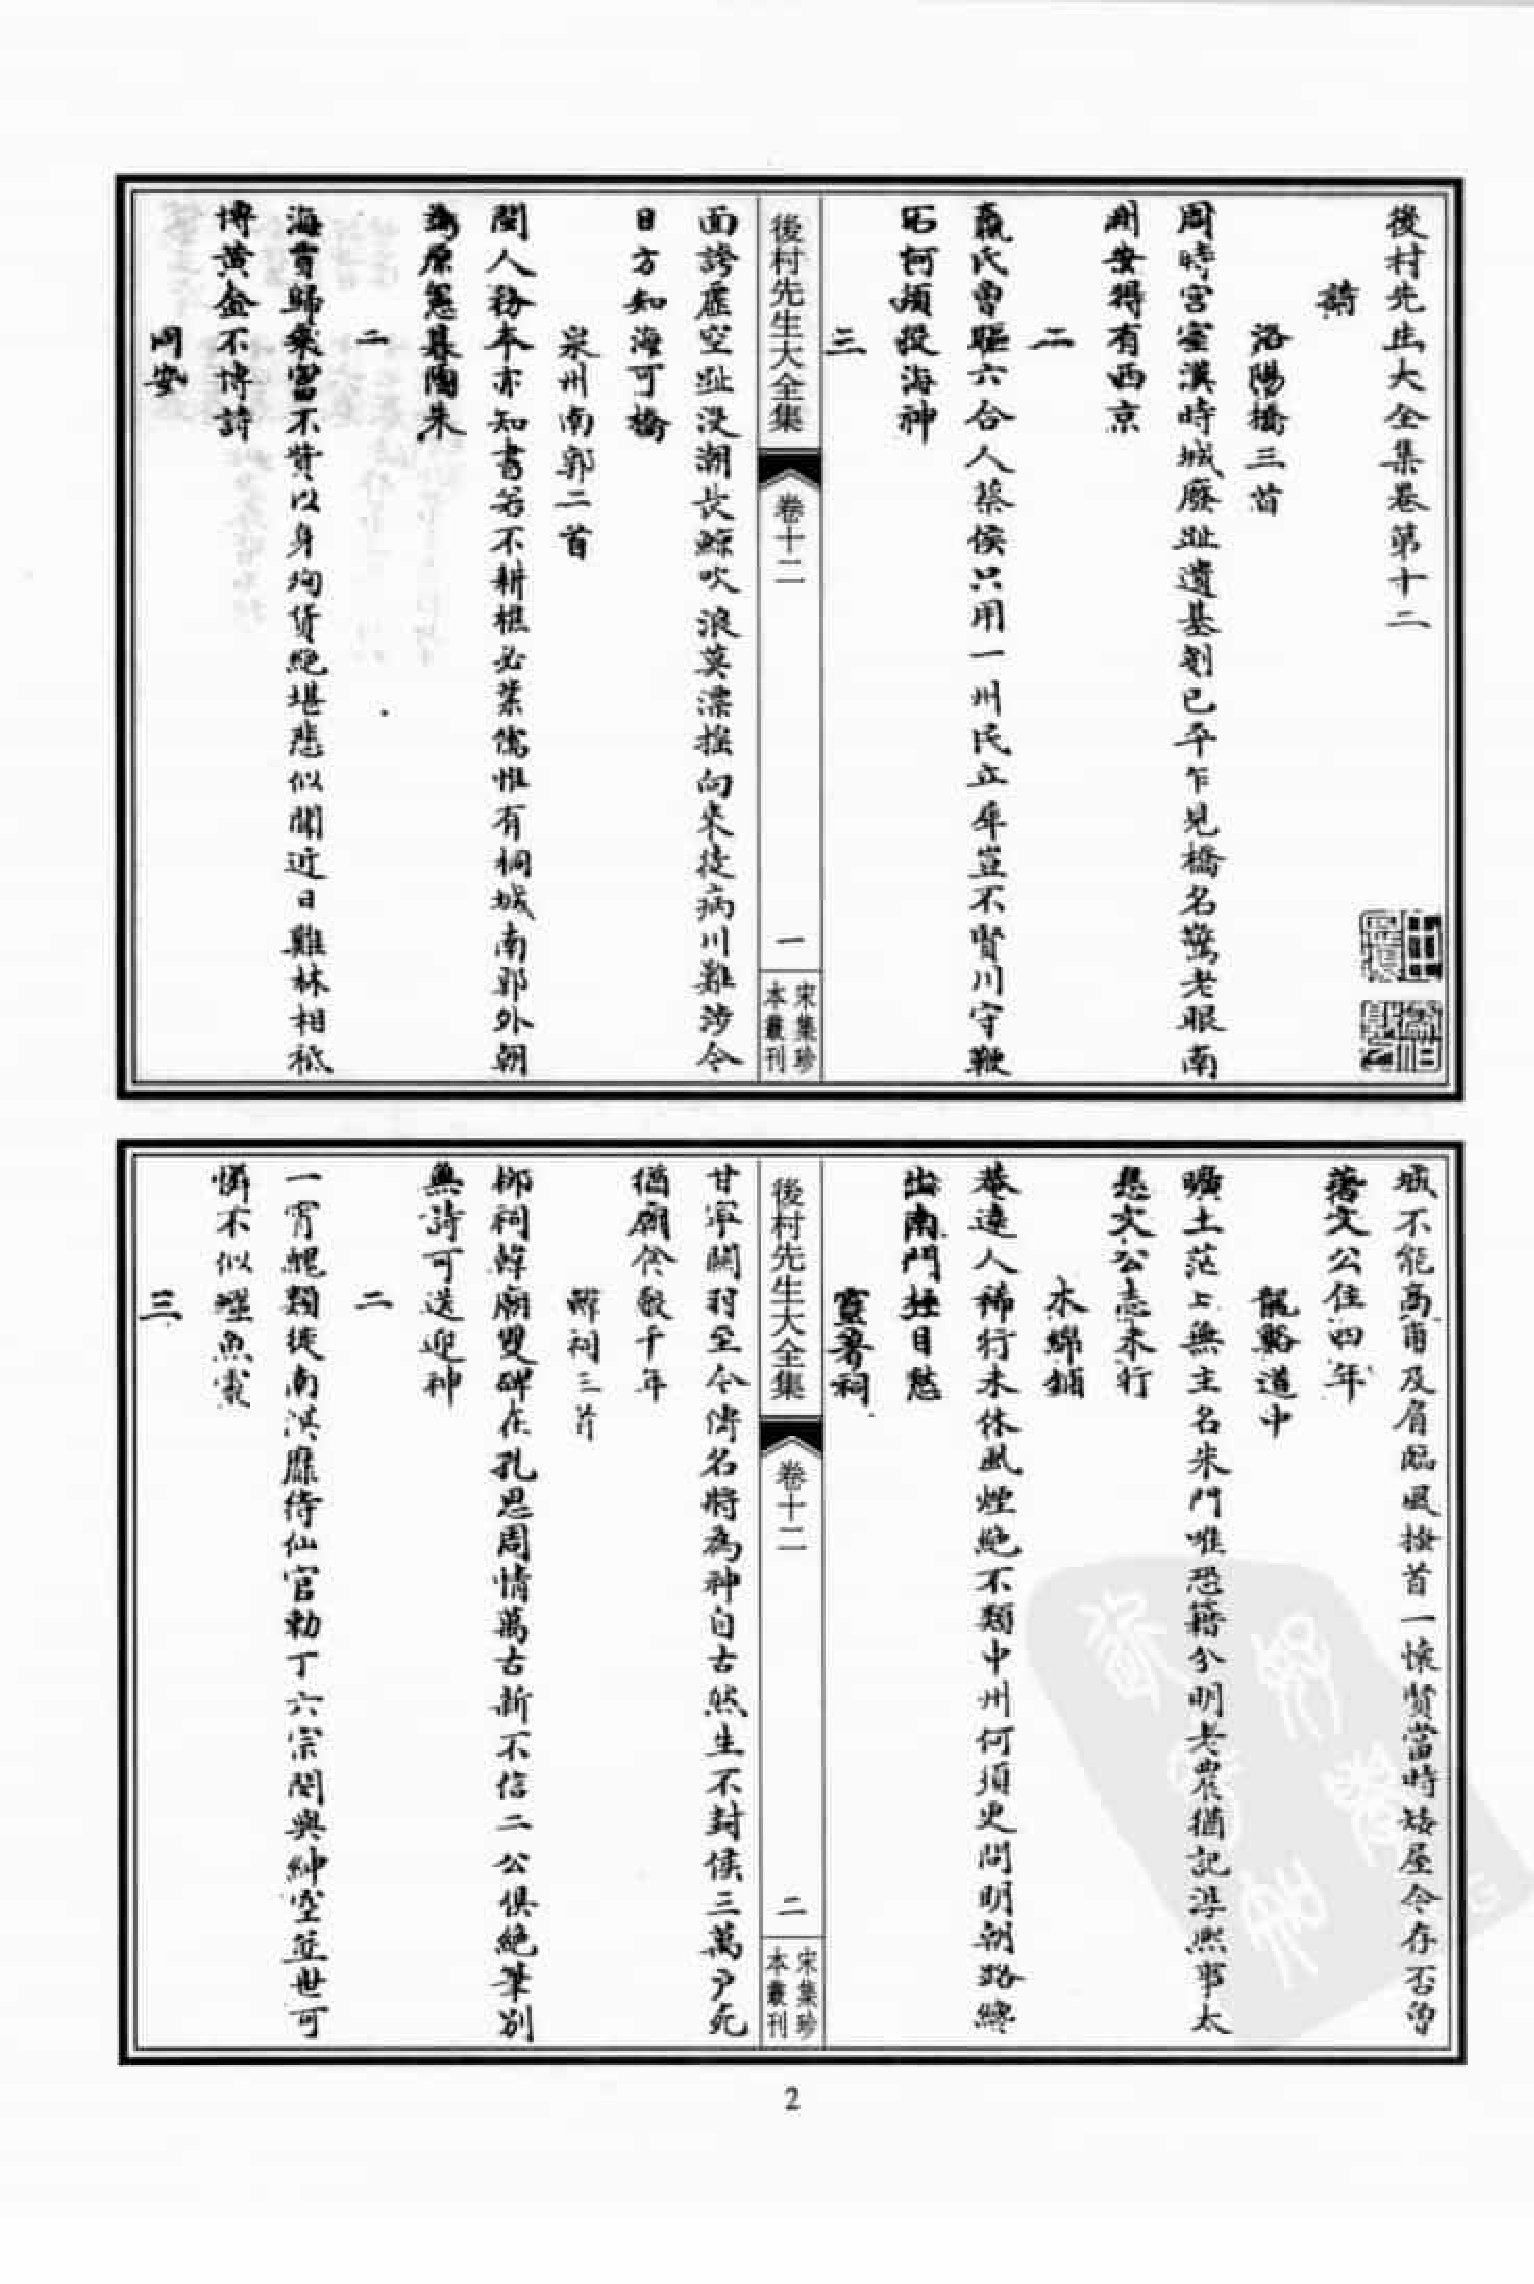 後村先生大全集卷第十二
詩
洛陽橋三首
周時宮室漢時城廢趾遺基剗已平乍見橋名驚老眼南
州安得有西京
二
嬴氏曾驅六合人蔡侯只用一州民立犀豈不賢川守鞭
石何須投海神
三
後村先生大全集
卷十二
一
宋集珍
本叢刊
面誇虛空趾没潮長鯨吹浪莫漂搖向來徒病川難涉今
日方知海可橋
泉州南郭二首
閩人務本亦知書若不耕樵必業儒惟有桐城南郭外朝
為原憲暮陶朱
二
海賈歸來富不貲以身殉貨絶堪悲似聞近日雞林相秪
博黄金不博詩
同安
城不能高甫及肩臨風搔首一懷賢當時矮屋今存否曽
著文公住四年
龍谿道中
曠土茫上無主名朱門唯恐籍分明老農猶記淳熈事太
息文公志未行
木綿鋪
菴逺人稀行未休風煙絶不類中州何須更問明朝路纔
出南門極目愁
靈著祠
後村先生大全集
卷十二
二
宋集珍
本叢刊
甘寜關羽至今傳名將為神自古然生不封侯三萬户死
猶廟食數千年
觧祠三首
栁祠韓廟雙碑在孔思周情萬古新不信二公俱絶筆别
無詩可送迎神
二
一宵鱷類徙南溟靡待仙官勅丁六宗閔與紳空並世可
憐不似鱷魚靈
三
2